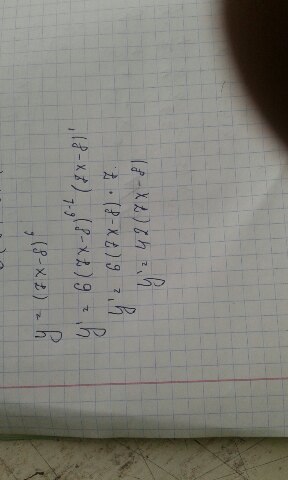 y = (7x-8)^6
y' = 6(7x-8)^{6-1} (7x-8)'
y' = 6(7x-8) · 7
y' = 42(7x-8)